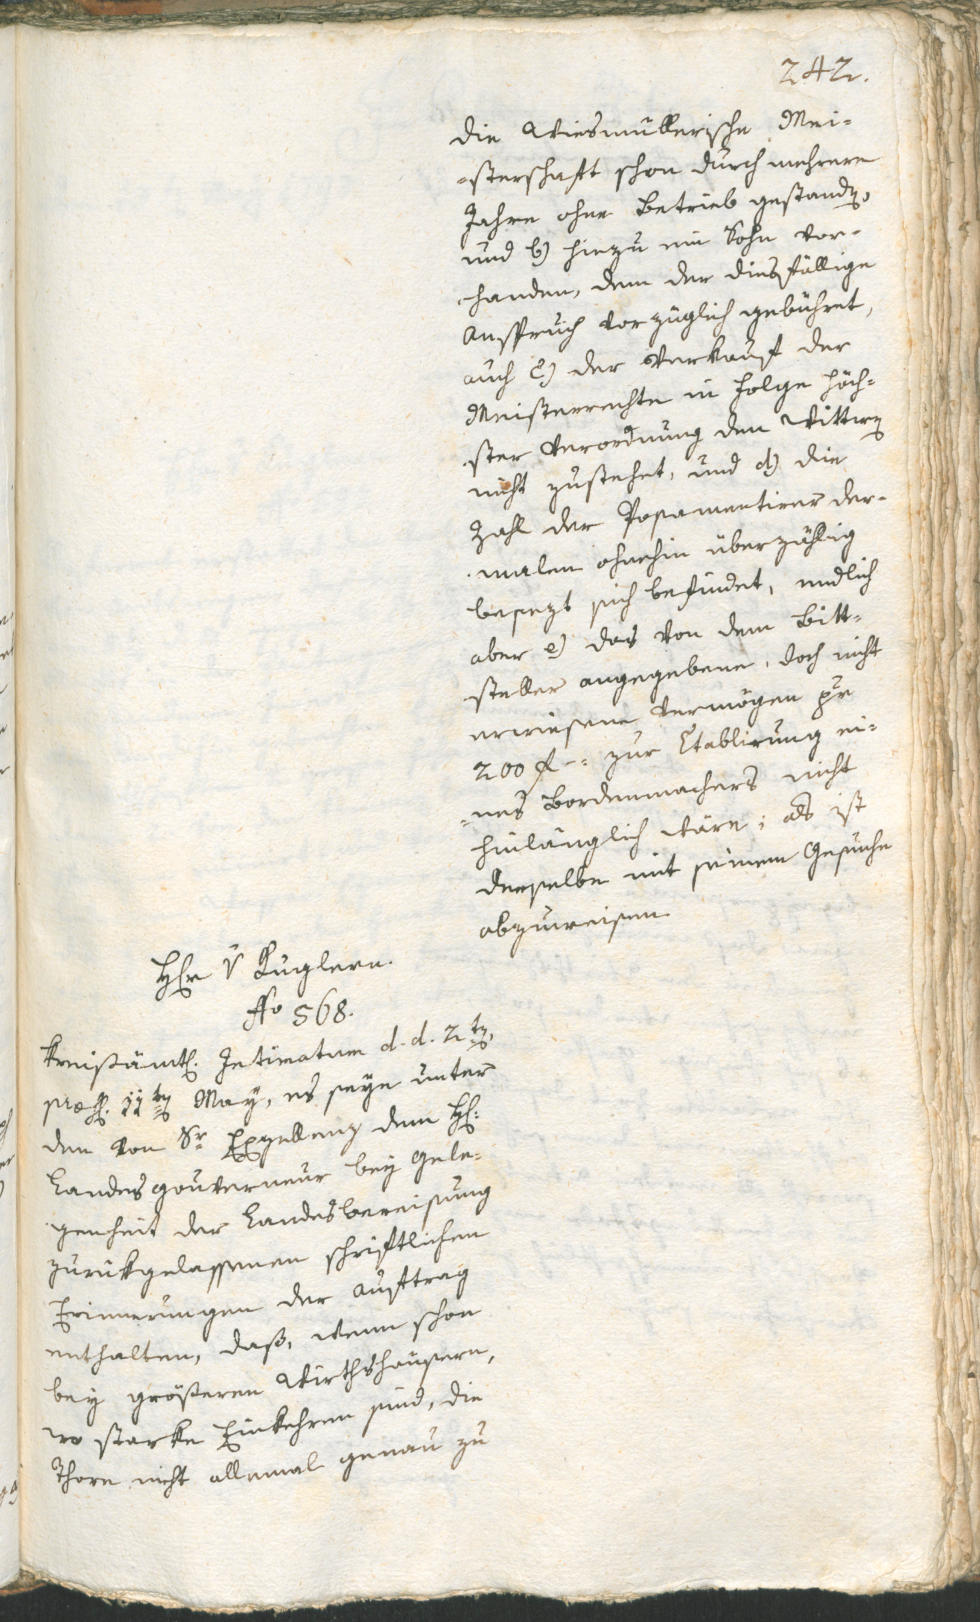 242.
die Wiesmüllerische Mei=
=sterschaft schon durch mehrere
Jahre ohne Betrieb gestanden,
und b) hiezu ein Sohn vor=
handen, dem der diesfällige
Anspruch vorzüglich gebühret,
auch c) der Verkauf der
Meisterrechte in Folge höch=
ster Verordnung den Wittwen
nicht zustehet, und d) die
Zahl der Posamentirer der=
malen ohnehin überzählig
besezt sich befindet, endlich
aber e) das von dem Bitt=
steller angegebene, doch nicht
erwiesene Vermögen pr
200 f -: zur Etablirung ei=
=nes Bordenmachers nicht
hinlänglich wäre; als ist
derselbe mit seinem Gesuche
abzuweisen.
Hr v Kuglern.
No 568.
Kreisämtl. Intimatum d. d. 2ten,
praes. 11ten May, es seye unter
den von Sr Exzellenz dem H:
Landesgouverneur bey Gele=
genheit der Landesbereisung
zurückgelassenen schriftlichen
Erinnerungen der Auftrag
enthalten, daß, wenn schon
bey größeren Wirthshäusern,
wo starke Einkehren sind, die
Thore nicht allemal genau zu